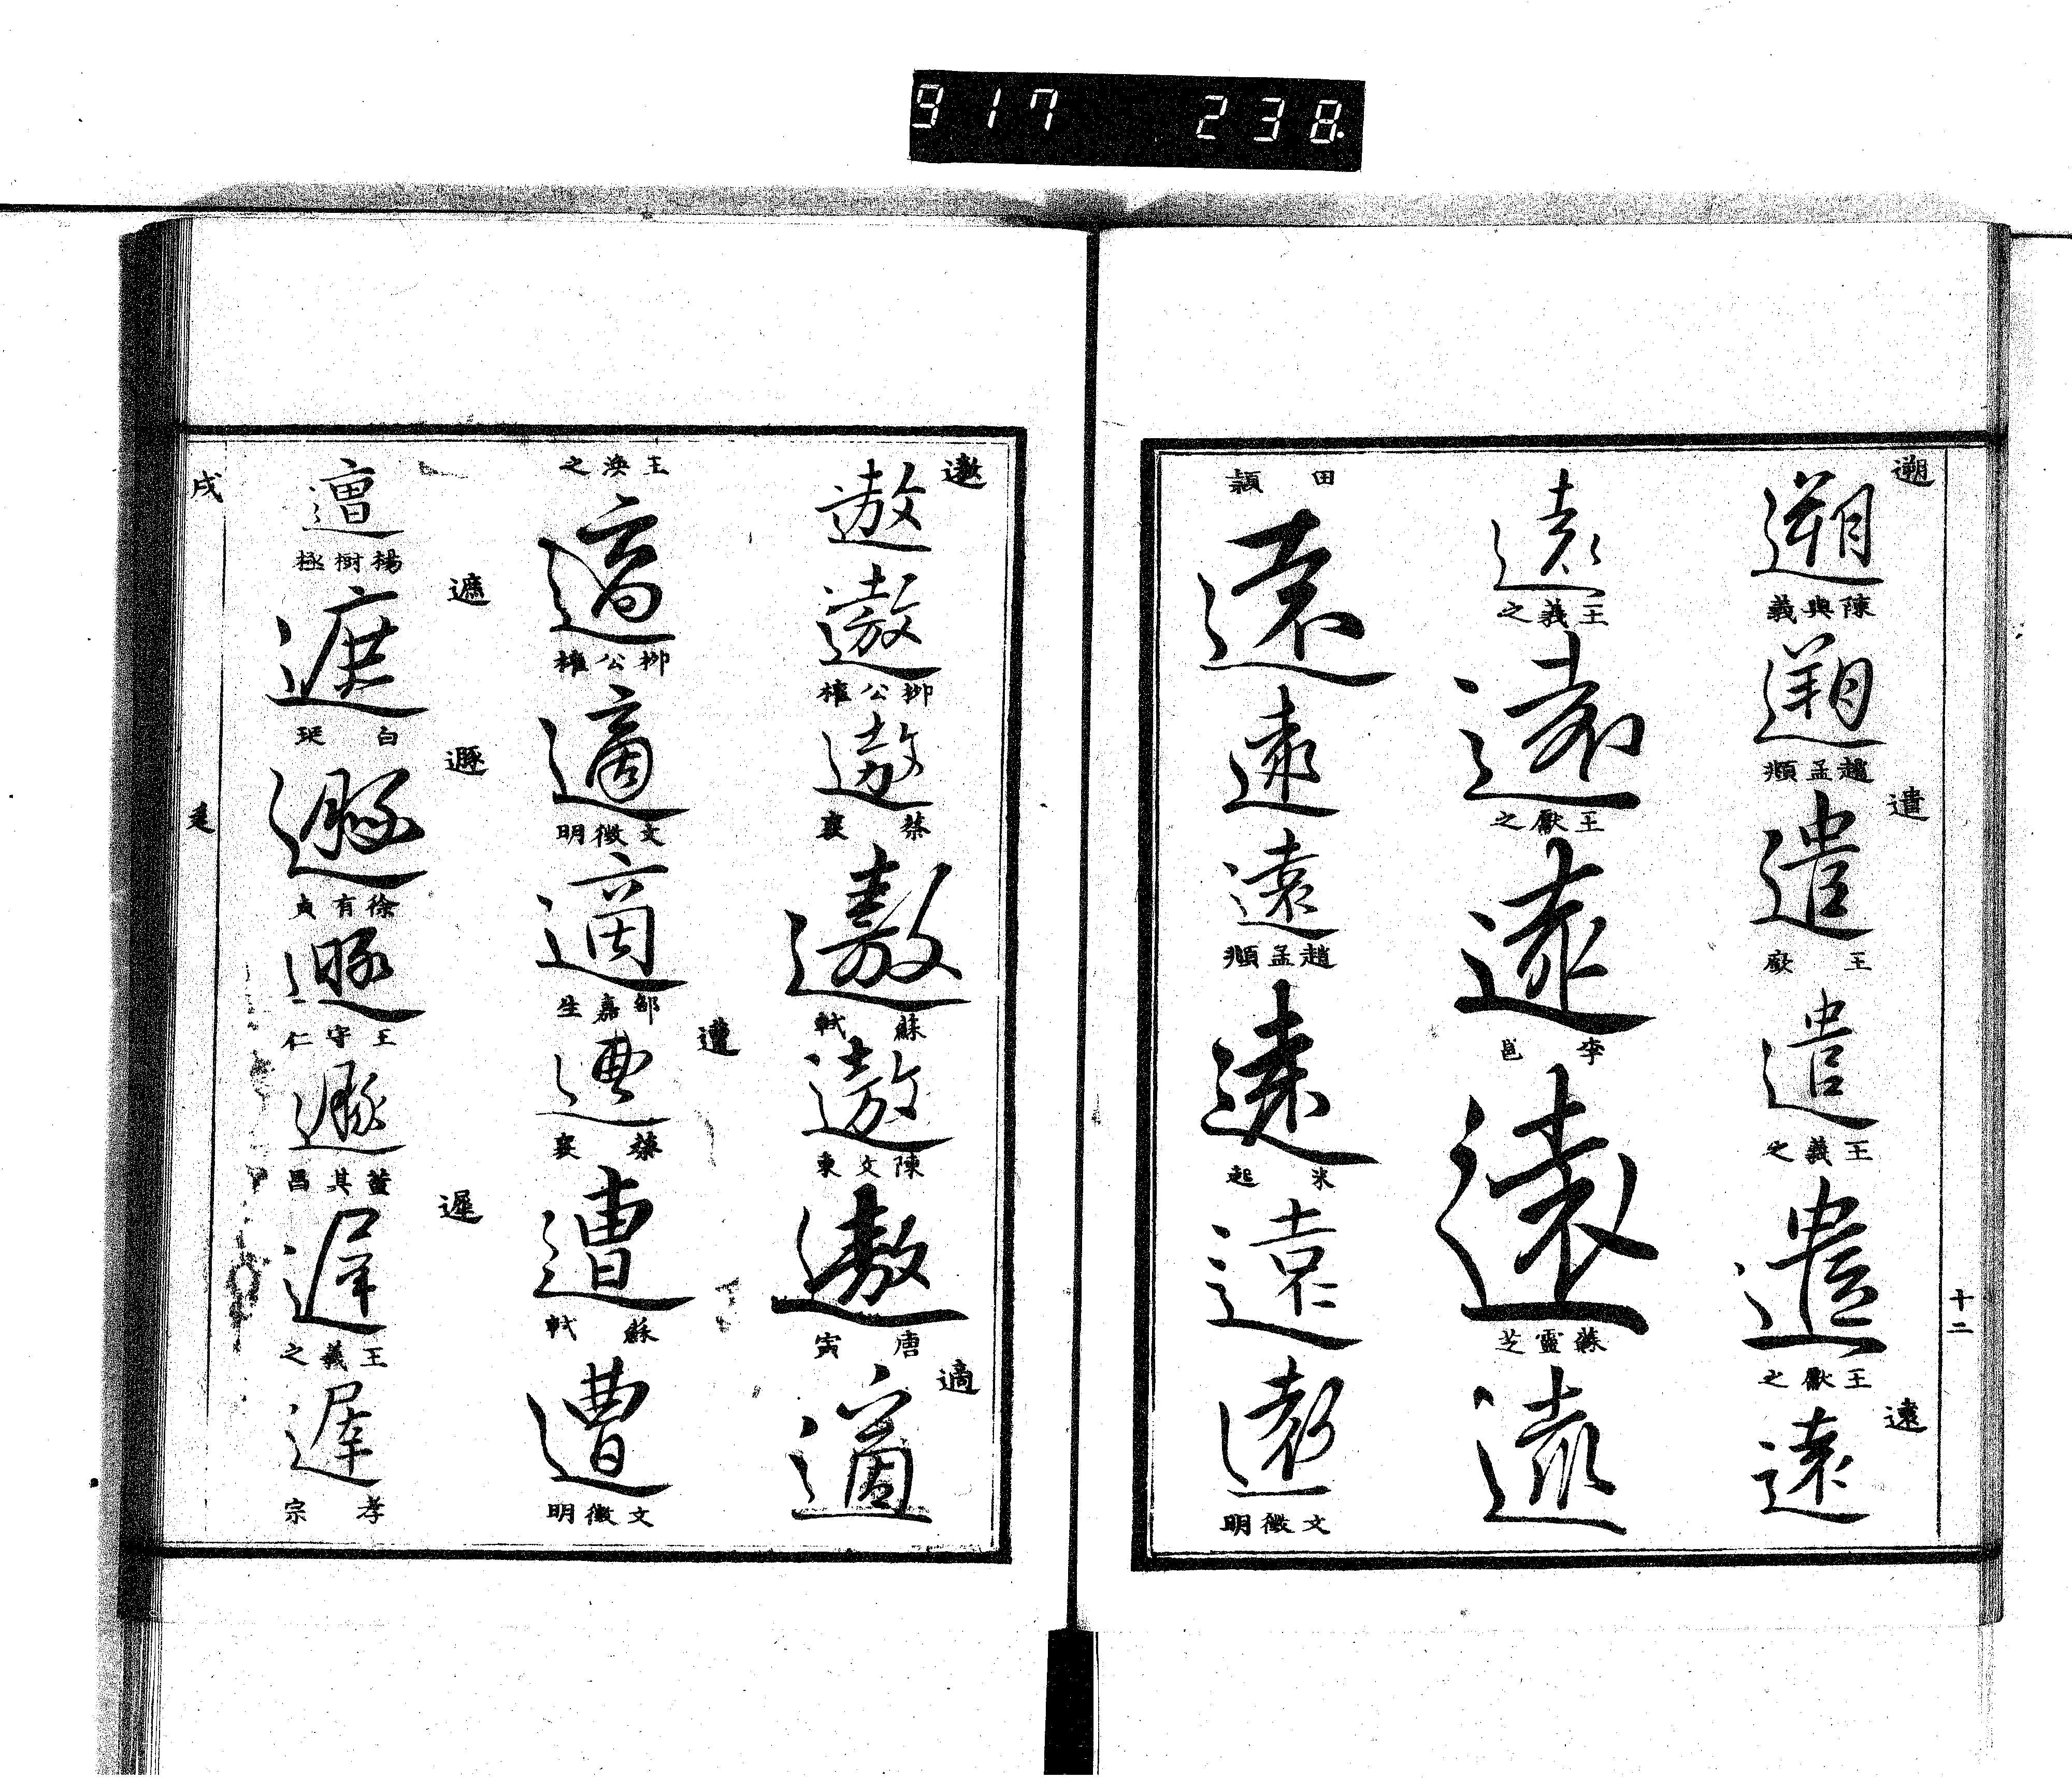 917 238
十二
遡
遡
陳與義
遡
趙孟頫
遣
遣
王廞
遣
王羲之
遣
王獻之
遠
遠
遠
王羲之
遠
王獻之
遠
李邕
遠
蘇靈芝
遠
田頴
遠
遠
遠
趙孟頫
遠
米芾
遠
遠
文徵明
遨
遨
遨
柳公權
遨
蔡襄
遨
蘇軾
遨
陳文東
遨
唐寅
適
適
王渙之
適
柳公權
適
文徵明
適
鄒嘉生
遭
遭
蔡襄
遭
蘇軾
遭
文徵明
遭
楊樹極
遮
遮
白琹
遯
遯
徐有貞
遯
王守仁
遯
董其昌
遲
遲
王羲之
遲
孝宗
戌
辵